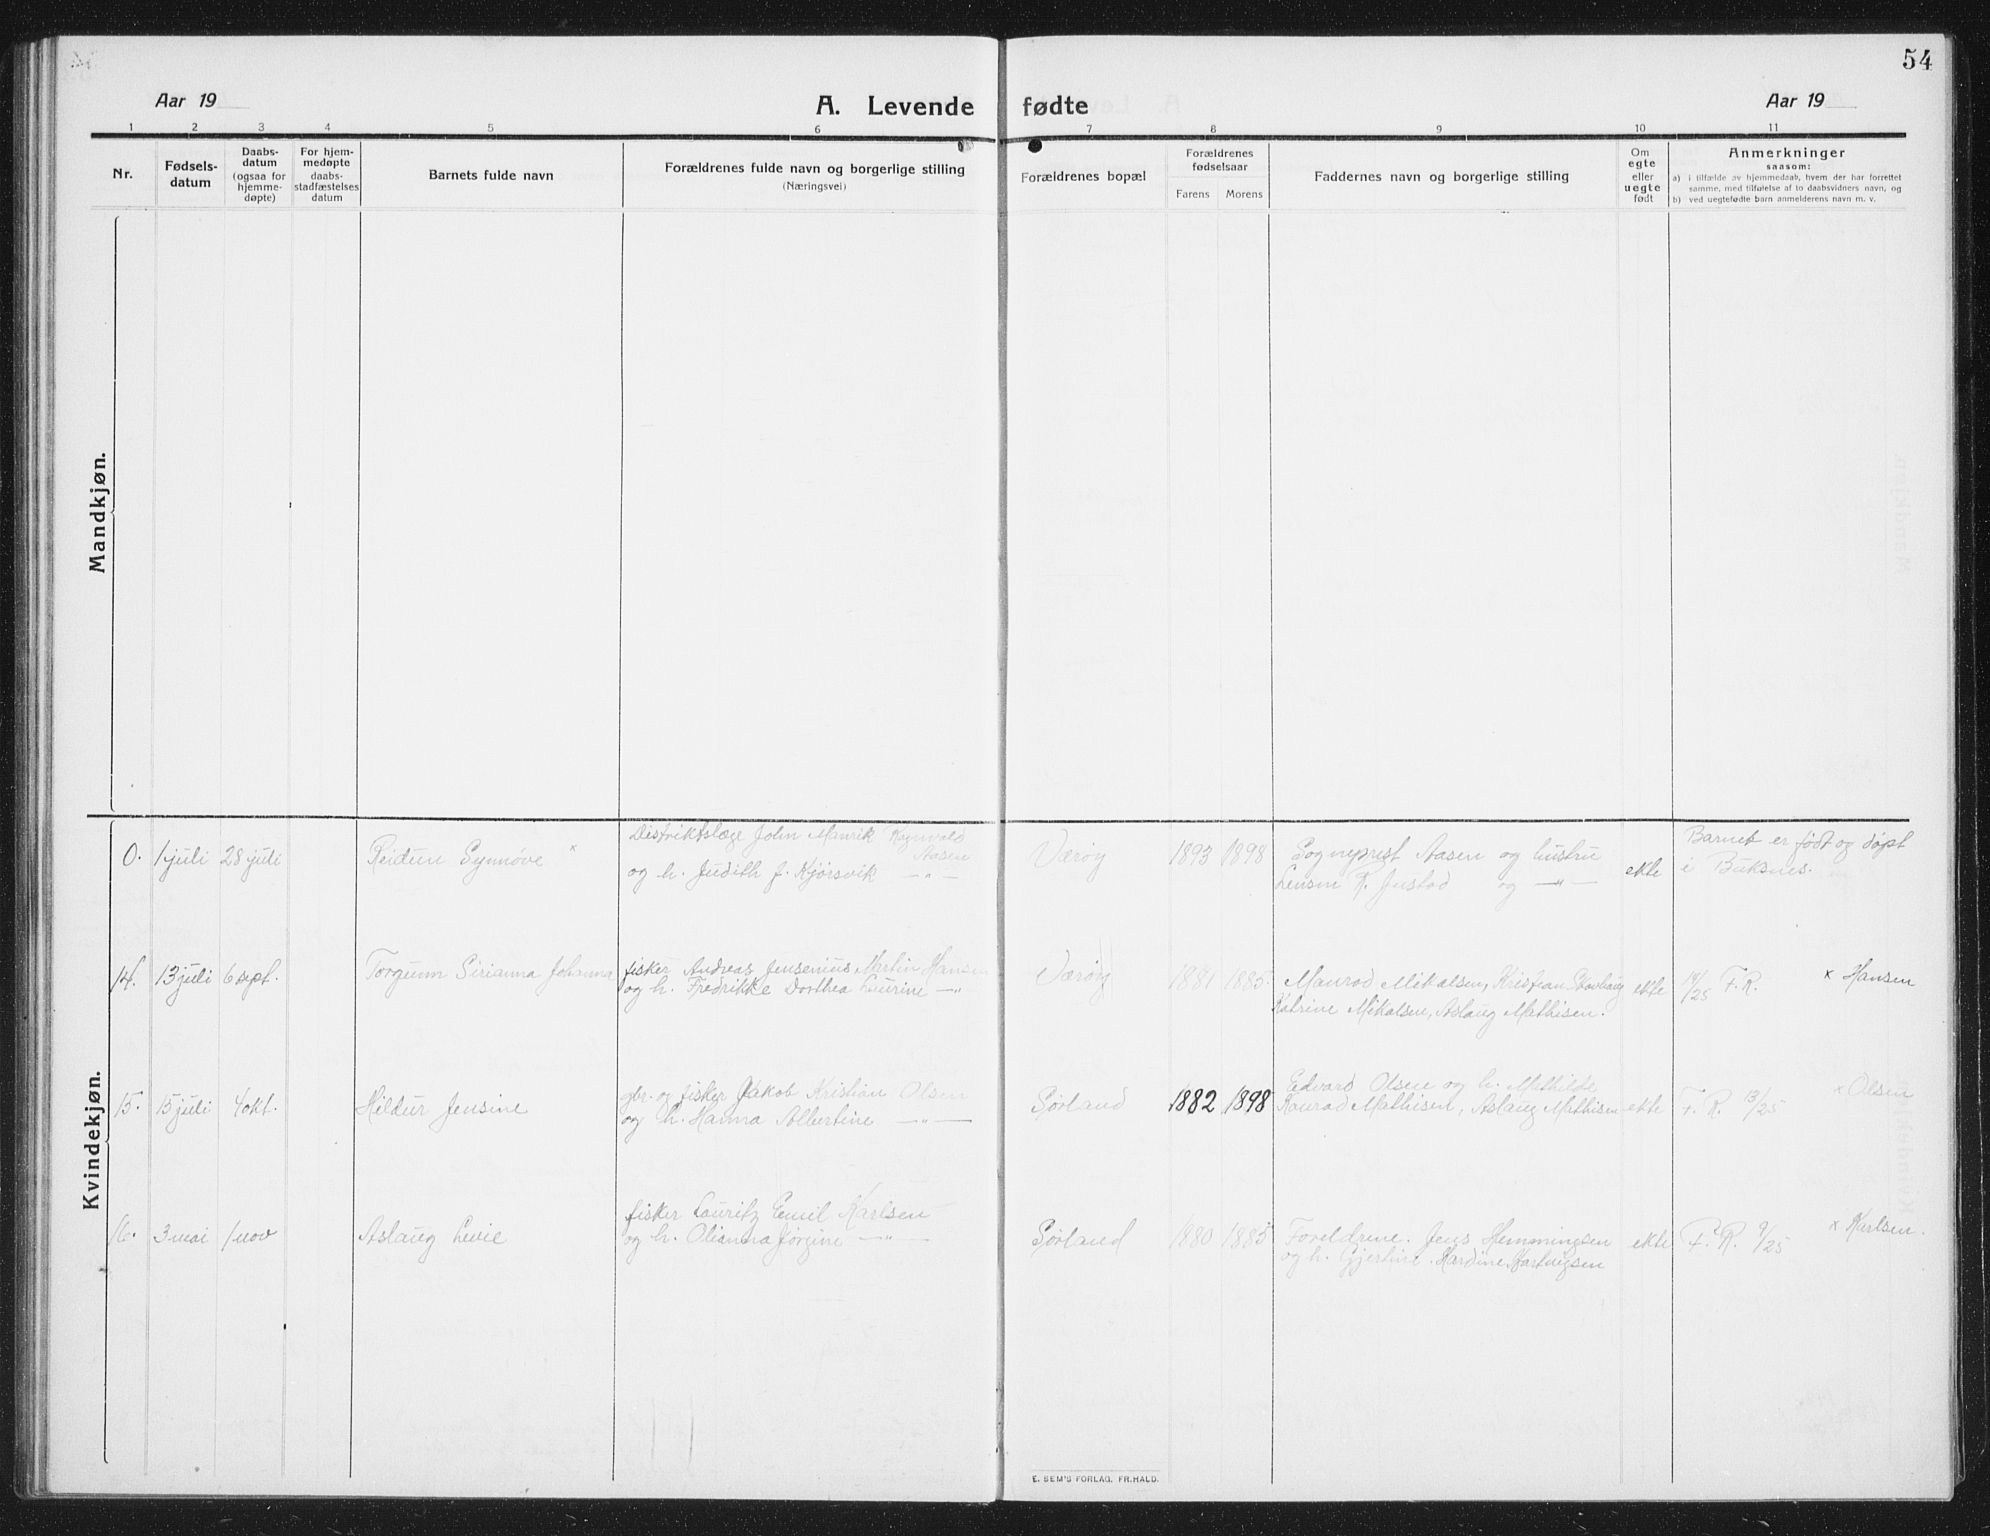 54
Aar 19
A. Levende fødte
Aar 19
1 2 3 4 5 6 7 8 9 10 11
Nr.
Fødsels-
datum
Daabs-
datum
(ogsaa for
hjemme-
døpte)
For hjem-
medøpte
daabs-
stadfæstelses
datum
Barnets fulde navn
Forældrenes fulde navn og borgerlige stilling
(Næringsvei)
Forældrenes bopæl
Forældrenes
fødselsaar
Farens Morens
Faddernes navn og borgerlige stilling
Om
egte
eller
uegte
født
Anmerkninger
saasom:
a) i tilfælde av hjemmedaab, hvem der har forrettet
samme, med tilføielse af to daabsvidners navn, og
b) ved uegtefødte barn anmelderens navn m. v.
Mandkjøn.
Kvindekjøn.
0. 1 juli 28 juli Reidun Synnöve x
Distriktslæge John Manrik Ragnvald
Aasen
og h. Judith f. Kjörsvik —"—
Værøy 1893 1898
Sogneprest Aasen og hustru
Lensm R. Justad og —"—
ekte
Barnet er født og døpt
i Buksnes.
14. 13 juli 6 sept. Torgunn Sirianna Johanna
fisker Andreas Jensenius Martin Hansen
og h. Fredrikke Dorthea Laurine —"—
Værøy 1881 1885.
Manrod Mikalsen, Kristian
Katrine Mikalsen, Aslaug Mathisen.
ekte
14/25 F. R. x Hansen
15. 15 juli 4 okt. Hildur Jensine
gbr. og fisker Jakob Kristian Olsen
og h. Hanna Albertine —"—
Sørland 1882 1898
Edvard Olsen og h. Mathilde
Konrad Mathisen, Aslaug Mathisen
ekte
F. R. 13/25 x Olsen
16. 3 mai 1 nov Aslaug Levie
fisker Lauritz Emil Karlsen
og h. Olianna Jørgine —"—
Sørland 1880 1885
Foreldrene. Jens Hemmingsen
og h. Gjertine. Hardine Hartvigsen
ekte
F. R. 9/25 x Karlsen.
E. SEM'S FORLAG, FR.HALD.